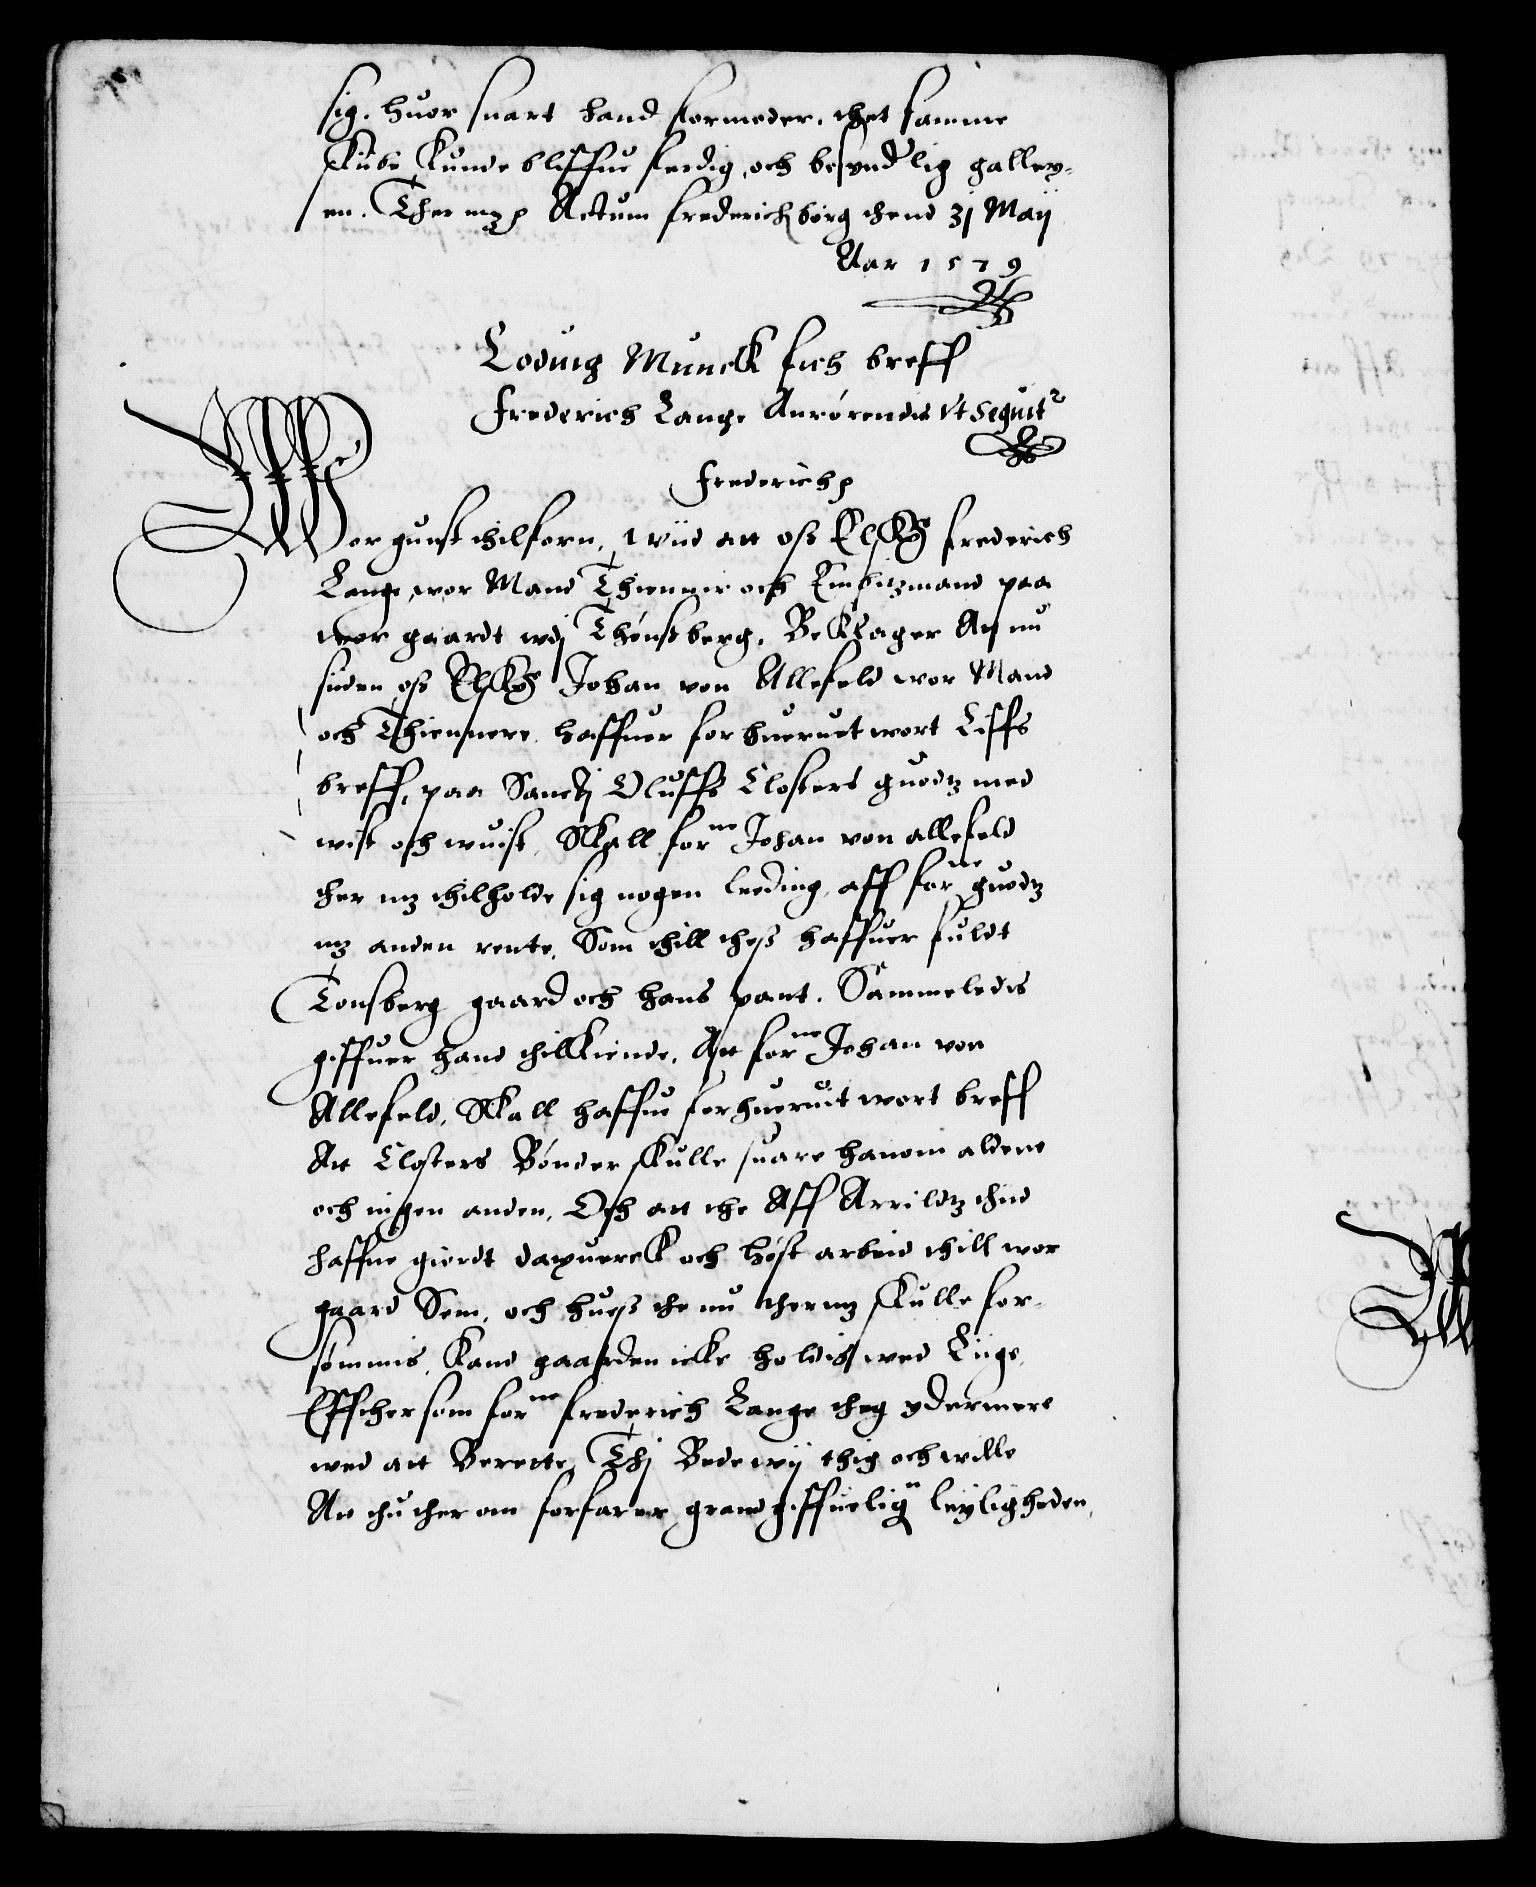 sig, huor snart hand formeder, thet samme
skibe kunde bliffue ferdig, och besynderlig galley-
en. Ther mz p Actum Frederichsborg thend 31 Maij
Aar 1579
Loduig Munck fich breff
Frederich Lange Anrørendis vt seguitr
Frederich p
Wor gunst thilforn, Wiid att oss Elskeg Frederich
Lange, wor Mand Thienner och Embitzmand paa
wor gaardt wdj Thønsberg, Beklager At nu
siden oss Elskeg Johan von Allefeld wor Mand
och Thiennere haffuer forhueruet wort Liffs
breff, paa Sancti Oluffs Closters guodtz med
wist och wuist, Skall forne Johan von allefeld
ther mz thilholde sig nogen leding, aff forne guodtz
mz anden rente, Som thill thess haffuer fuldt
Tonsberg gaard och hans pant. Sammeledis
giffuer hand thilkiende, At forne Johan von
Allefeld, Skall haffue forhueruit wort breff
At Closters Bønder skulle suare hanom aldene
och ingen anden, Och att the Aff Arrildtz thid
haffue giordt daguerck och høst arbeid thill wor
gaard Sem, och huess the nu thermz skulle for-
sømmis, kand gaarden icke holdis wed Liige,
Effther som forne Frederich Lange theg ydermere
wed att Berette, Thj Bede wij thig och wille
At thu ther om forfarer grandgiffuelign leyligheden,